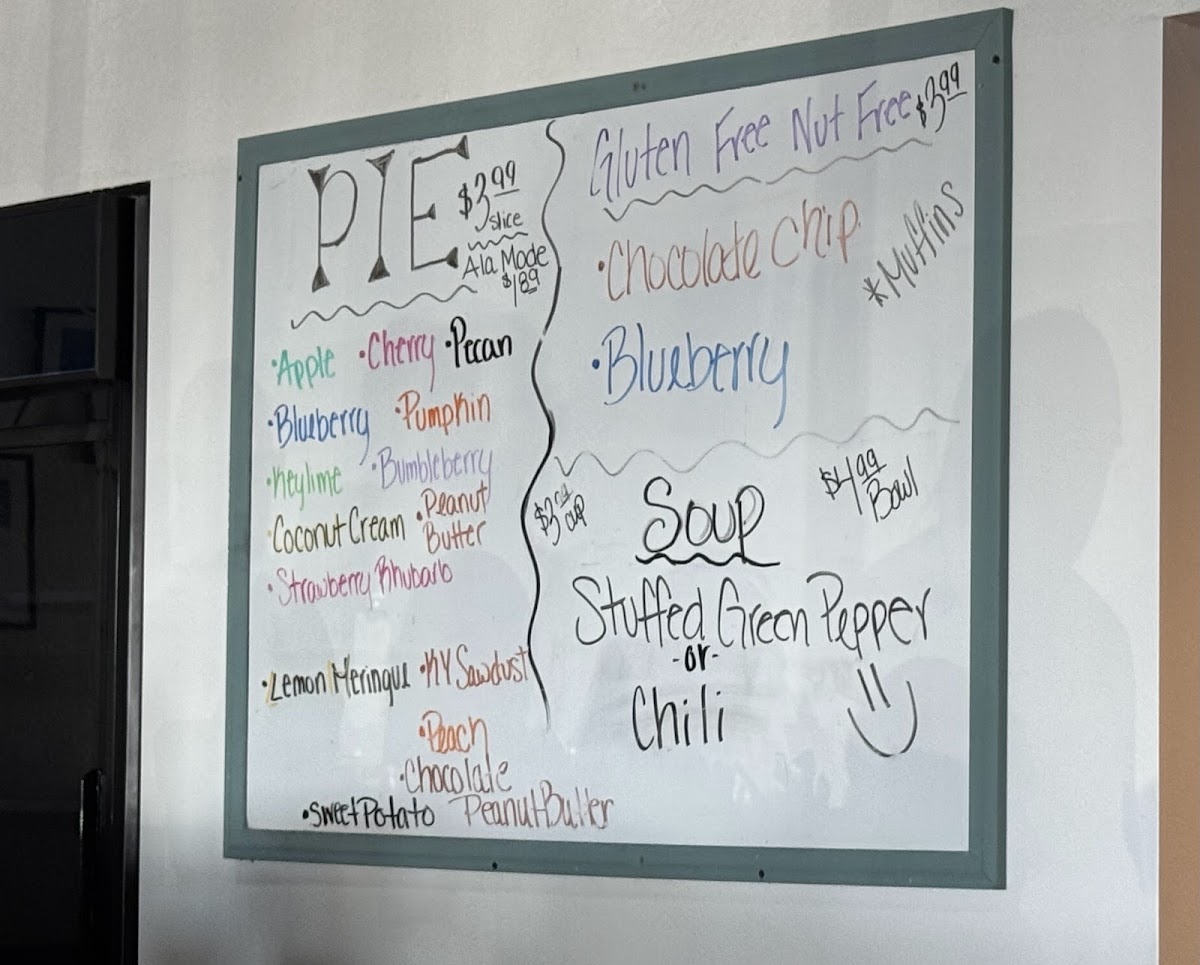 PIE $3.99
slice
Ala Mode
$1.89
•Apple •Cherry •Pecan
•Blueberry •Pumpkin
•Keylime •Bumbleberry
•Coconut Cream •Peanut
Butter
•Strawberry Rhubarb
•Lemon Meringue •KY Sawdust
•Peach
•Chocolate
•Sweet Potato Peanut Butter
Gluten Free Nut Free $3.99
•Chocolate Chip
*Muffins
•Blueberry
cup
Soup
$4.99
Bowl
Stuffed Green Pepper
-or-
Chili